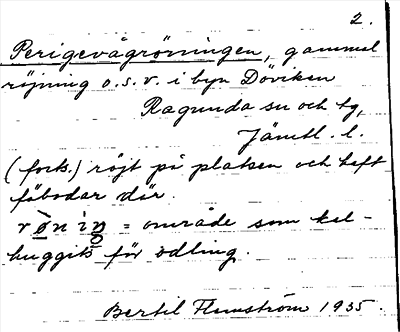 2.
Perigevågrönningen, gammal
röjning o.s.v. i byn Döviken
Ragunda sn och tg,
Jämtl. l.
(forts.) röjt på platsen och haft
fäbodar där.
= område som kal-
huggits för odling.
Bertil Flemström 1935.